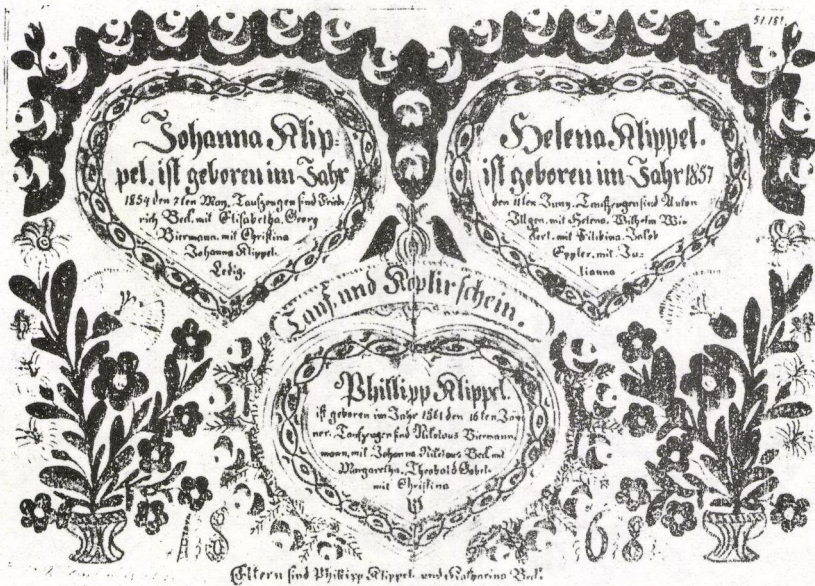 51.151.
Johanna Klip=
pel. ist geboren im Jahr
1854 den 7ten May. Taufzeugen sind Fride
rich Beck. mit Elisabetha. Georg
Biermann. mit Christina
Johanna Klippel.
Ledig.
Helena Klippel.
ist geboren im Jahr 1857
den 11ten Juny. Taufzeugen sind Anton
Illgen. mit Helena. Wilhelm
mit Filibina. Jakob
Eppler. mit Ju=
lianna
Tauf. und Koplirschein.
Phillipp Klippel.
ist geboren im Jahr 1861 den 16ten Jan
ner. Taufzeugen sind Nikolous Biermann
mann. mit Johanna Nikolaus Beck mit
Margaretha. Theobald
mit Christina
18 68
Eltern sind Phillipp Klippel. und Katharina Beck.